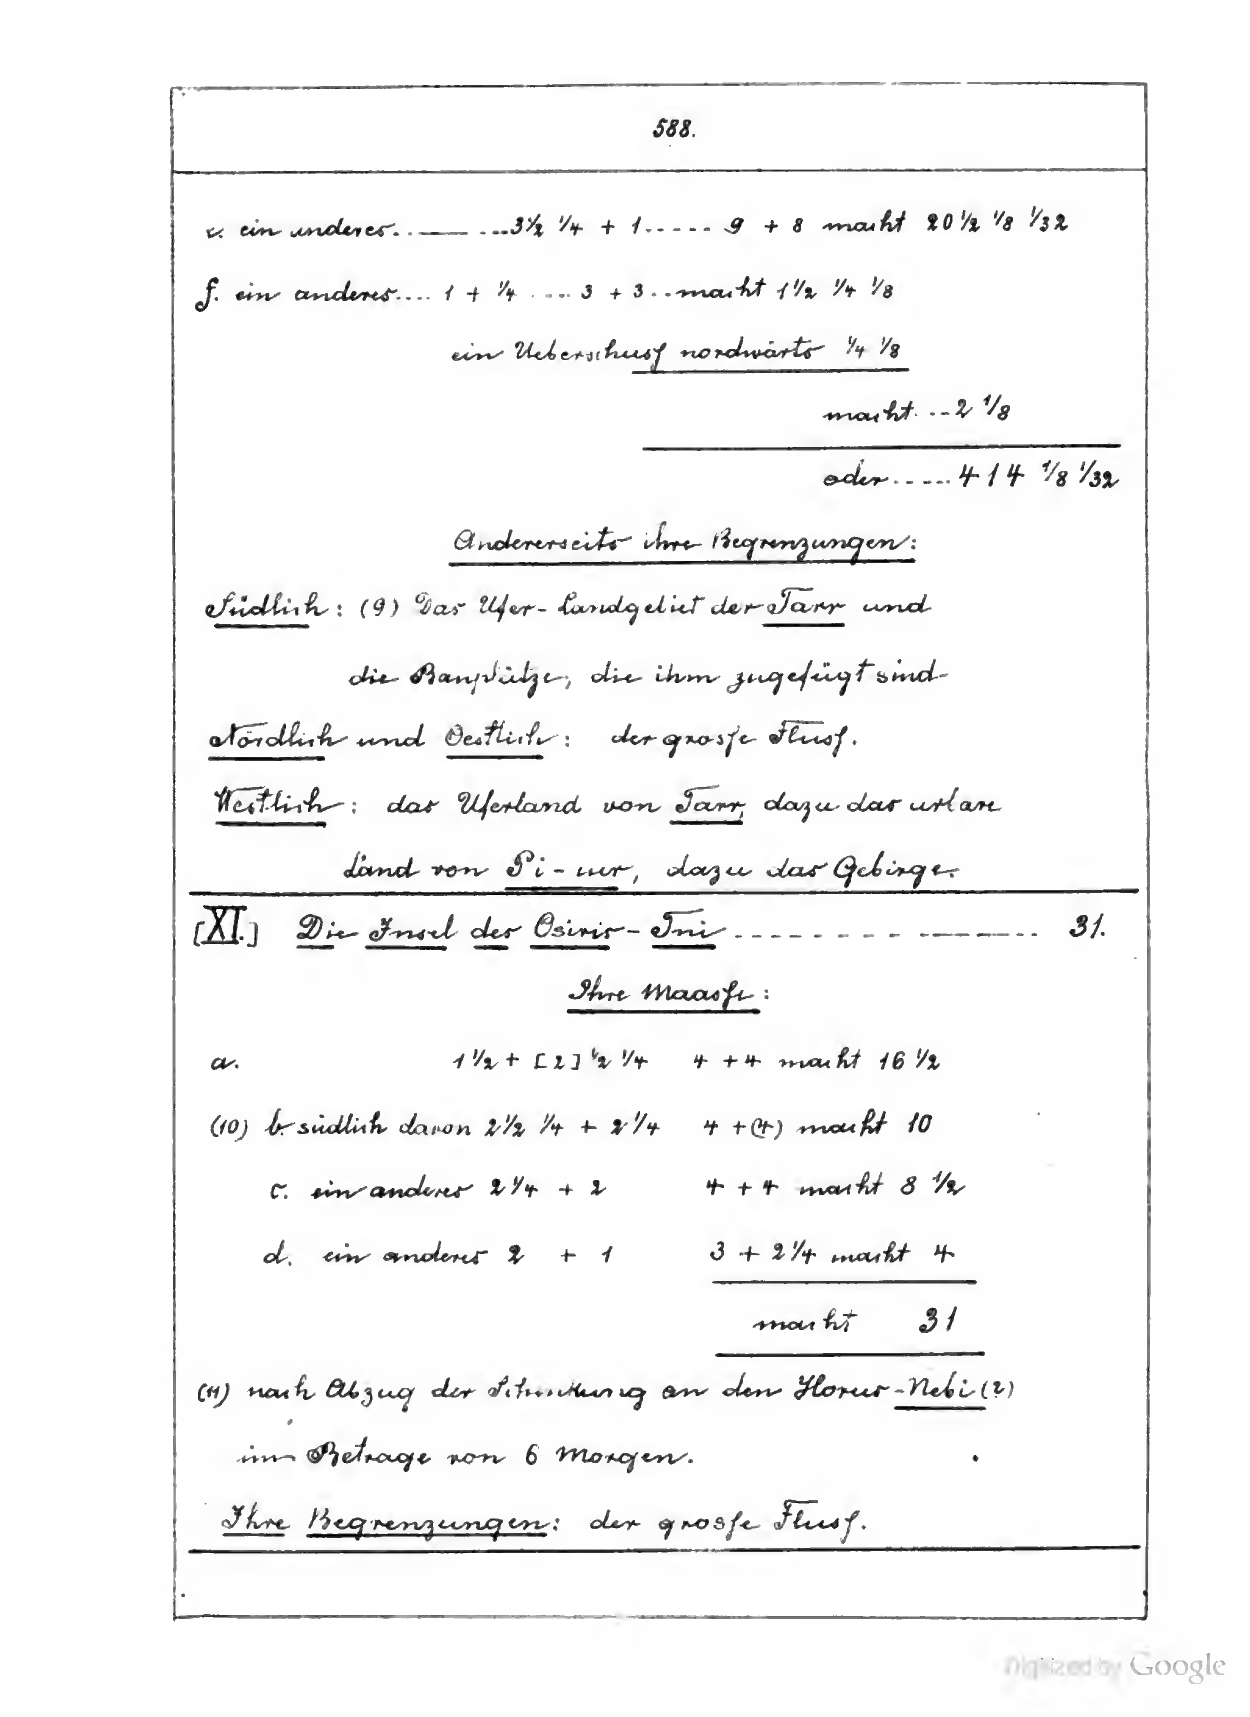 588.
e. ein anderes.........3½ ¼ + 1..... 9 + 8 macht 20 ½ ⅛ 1/32
f. ein anderes.... 1 + ¼ .... 3 + 3..macht 1 ½ ¼ ⅛
ein Ueberschuss nordwärts ¼ ⅛
macht...2 ⅛
oder.....414 ⅛ 1/32
Andererseits ihre Begrenzungen:
Südlich: (9) Das Ufer-Landgebiet der Tarr und
die Bauplätze, die ihm zugefügt sind-
Nördlich und Oestlich: der grosse Fluss.
Westlich: das Uferland von Tarr, dazu das urbare
Land von Pi-uur, dazu das Gebirge.
[XI.] Die Insel des Osiris-Tni.................. 31.
Ihre Maasse:
a. 1 ½ + [2] ½ ¼ 4 + 4 macht 16 ½
(10) b. südlich davon 2 ½ ¼ + 2 ¼ 4 + (4) macht 10
c. ein anderes 2 ¼ + 2 4 + 4 macht 8 ½
d. ein anderes 2 + 1 3 + 2 ¼ macht 4
macht 31
(11) nach Abzug der Schenkung an den Horus-Nebi (?)
im Betrage von 6 Morgen.
Ihre Begrenzungen: der grosse Fluss.
Digitized by Google